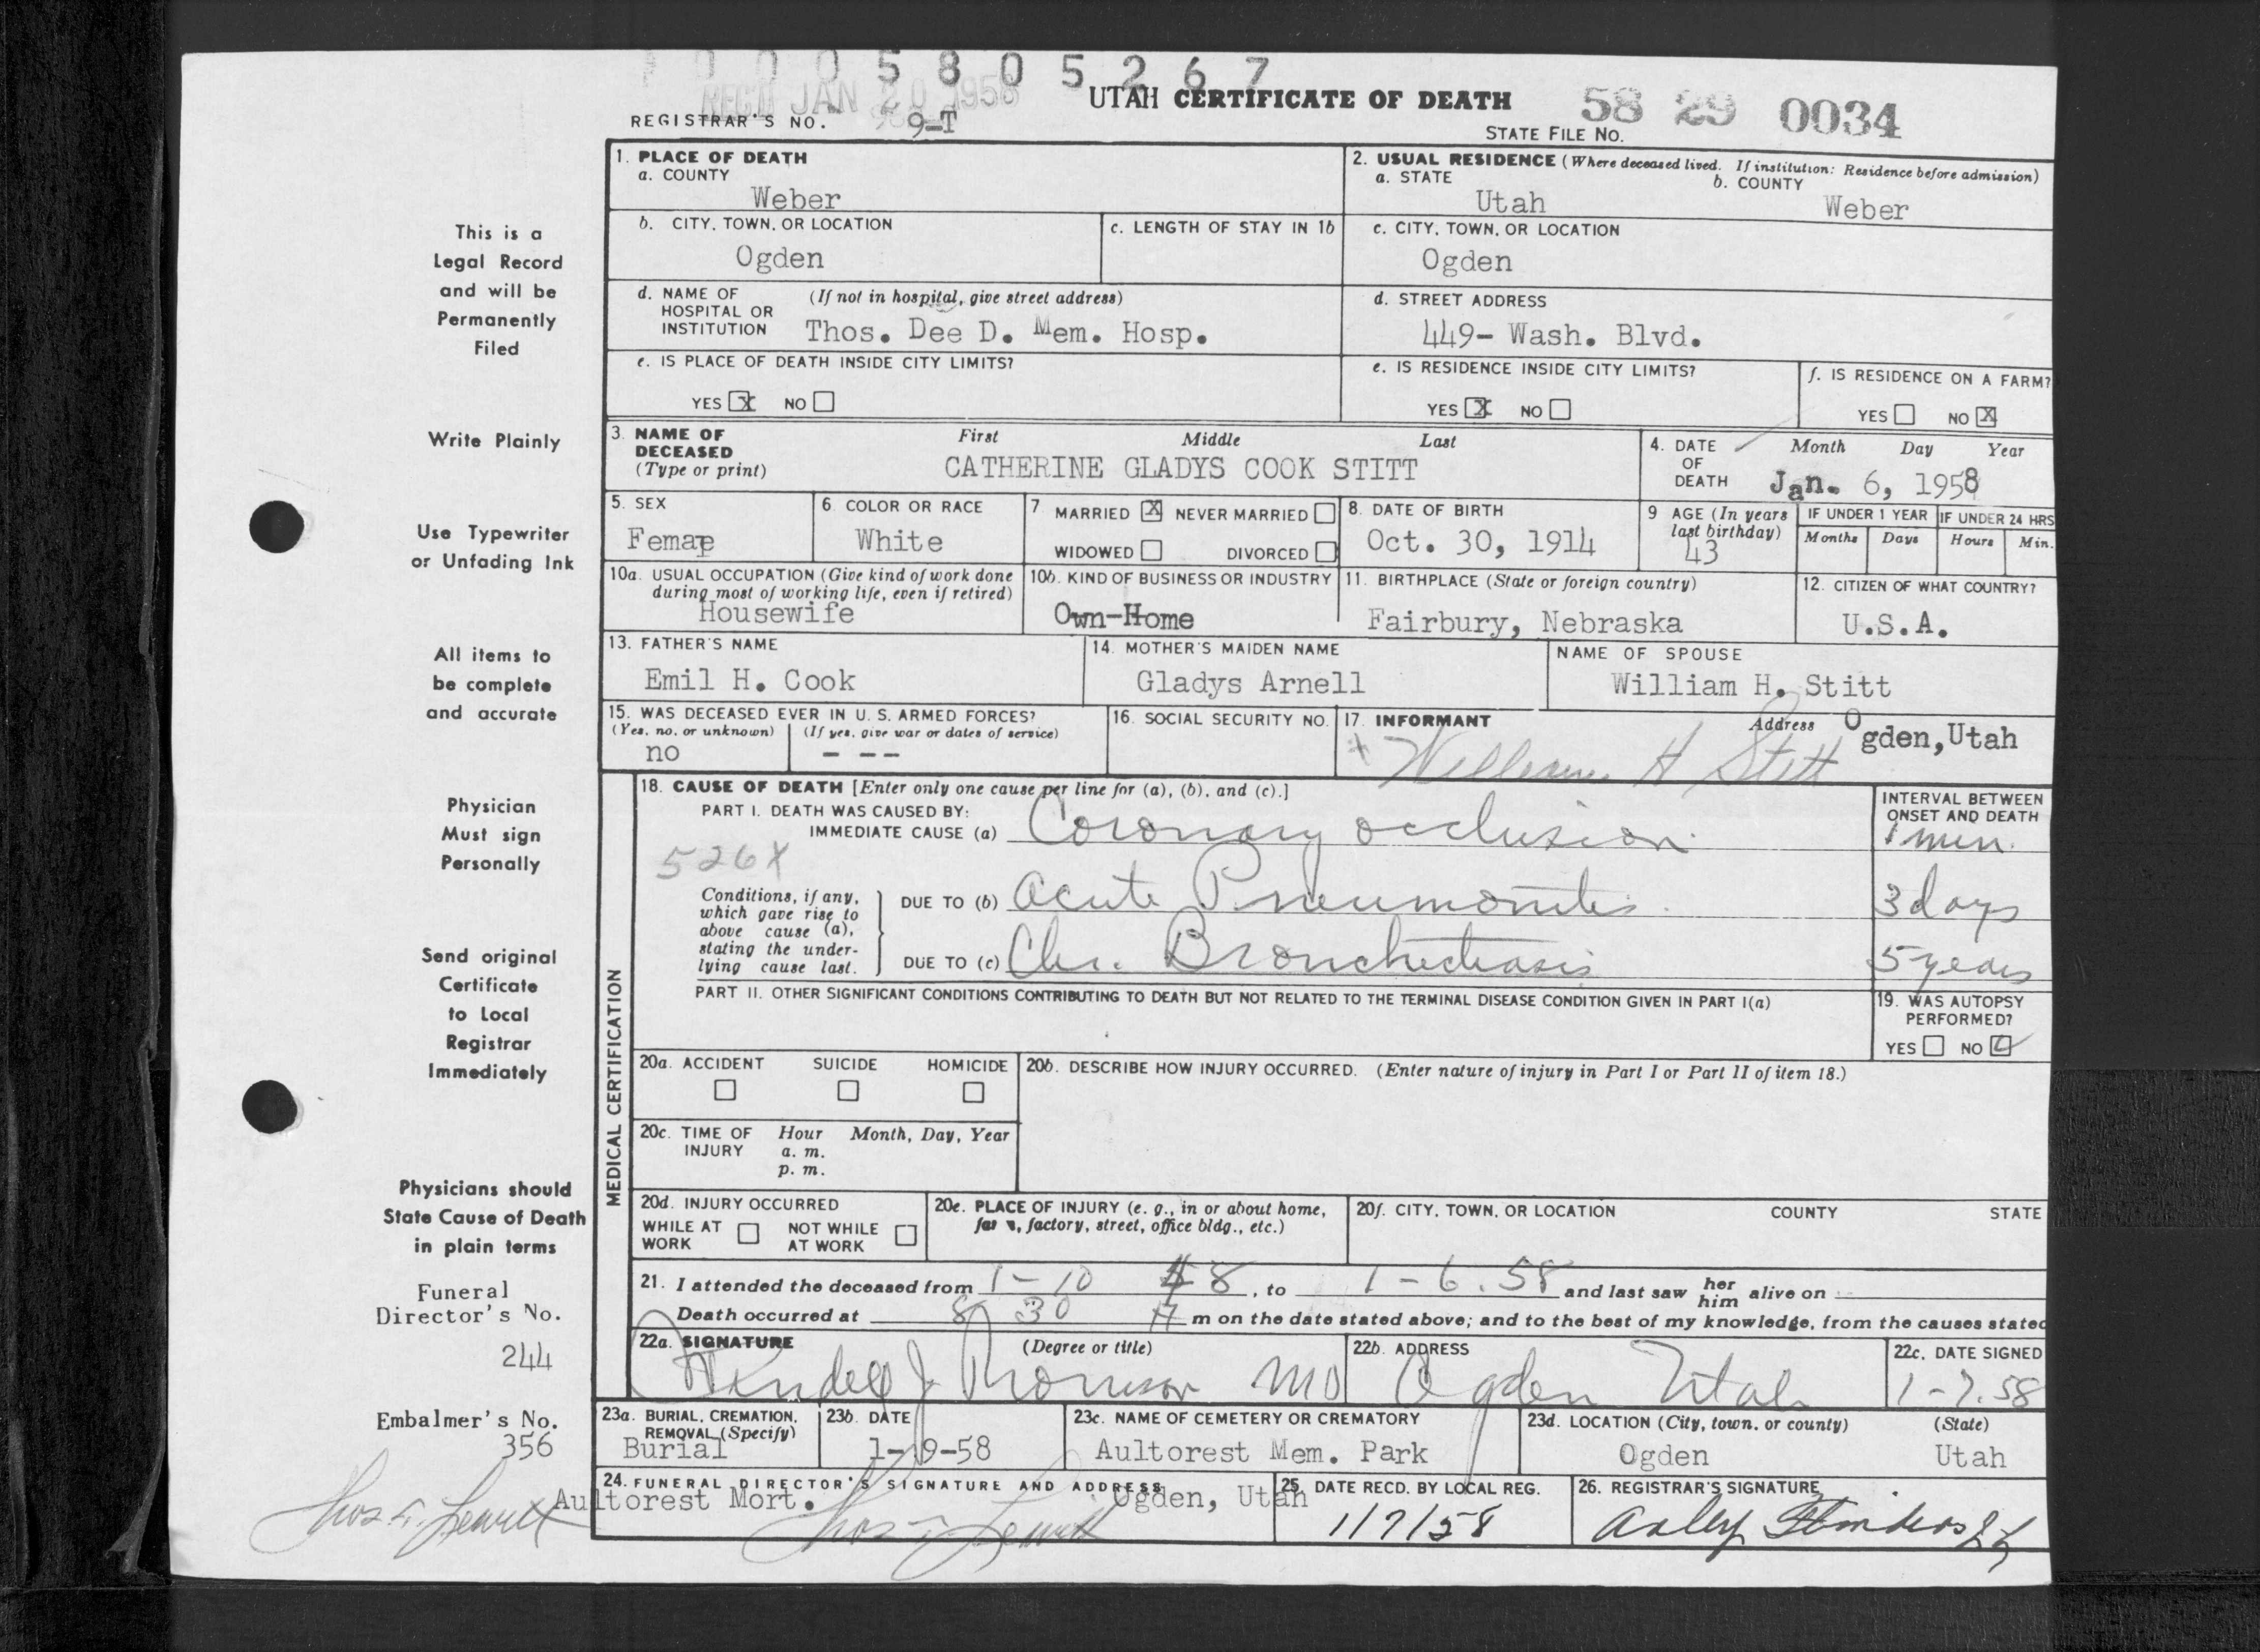 1 0 0 0 5 8 0 5 2 6 7
REC'D JAN 20 1958
UTAH CERTIFICATE OF DEATH
58 29 0034
REGISTRAR'S NO. 9-T
STATE FILE NO.
This is a
Legal Record
and will be
Permanently
Filed
Write Plainly
Use Typewriter
or Unfading Ink
All items to
be complete
and accurate
Physician
Must sign
Personally
Send original
Certificate
to Local
Registrar
Immediately
Physicians should
State Cause of Death
in plain terms
Funeral
Director's No.
244
Embalmer's No.
356
1. PLACE OF DEATH
a. COUNTY
Weber
2. USUAL RESIDENCE (Where deceased lived. If institution: Residence before admission)
a. STATE
Utah
b. COUNTY
Weber
b. CITY, TOWN, OR LOCATION
Ogden
c. LENGTH OF STAY IN 1b
c. CITY, TOWN, OR LOCATION
Ogden
d. NAME OF HOSPITAL OR INSTITUTION
(If not in hospital, give street address)
Thos. Dee D. Mem. Hosp.
d. STREET ADDRESS
449- Wash. Blvd.
e. IS PLACE OF DEATH INSIDE CITY LIMITS?
YES X NO
e. IS RESIDENCE INSIDE CITY LIMITS?
YES X NO
f. IS RESIDENCE ON A FARM?
YES NO X
3. NAME OF DECEASED (Type or print)
First Middle Last
CATHERINE GLADYS COOK STITT
4. DATE OF DEATH
Month Day Year
Jan. 6, 1958
5. SEX
Femae
6. COLOR OR RACE
White
7 MARRIED X NEVER MARRIED
WIDOWED DIVORCED
8. DATE OF BIRTH
Oct. 30, 1914
9 AGE (In years last birthday)
43
IF UNDER 1 YEAR
Months Days
IF UNDER 24 HRS
Hours Min.
10a. USUAL OCCUPATION (Give kind of work done during most of working life, even if retired)
Housewife
10b. KIND OF BUSINESS OR INDUSTRY
Own-Home
11. BIRTHPLACE (State or foreign country)
Fairbury, Nebraska
12. CITIZEN OF WHAT COUNTRY?
U.S.A.
13. FATHER'S NAME
Emil H. Cook
14. MOTHER'S MAIDEN NAME
Gladys Arnell
NAME OF SPOUSE
William H. Stitt
15. WAS DECEASED EVER IN U. S. ARMED FORCES?
(Yes, no, or unknown) (If yes, give war or dates of service)
no - - -
16. SOCIAL SECURITY NO.
17. INFORMANT
Address
Ogden, Utah
x William H Stitt
MEDICAL CERTIFICATION
18. CAUSE OF DEATH [Enter only one cause per line for (a), (b), and (c).]
PART I. DEATH WAS CAUSED BY:
IMMEDIATE CAUSE (a) Coronary occlusion
INTERVAL BETWEEN ONSET AND DEATH
1 min.
526X
Conditions, if any, which gave rise to above cause (a), stating the underlying cause last.
DUE TO (b) Acute Pneumonitis
3 days
DUE TO (c) Chr. Bronchectiasis
5 years
PART II. OTHER SIGNIFICANT CONDITIONS CONTRIBUTING TO DEATH BUT NOT RELATED TO THE TERMINAL DISEASE CONDITION GIVEN IN PART I(a)
19. WAS AUTOPSY PERFORMED?
YES NO
20a. ACCIDENT SUICIDE HOMICIDE
20b. DESCRIBE HOW INJURY OCCURRED. (Enter nature of injury in Part I or Part II of item 18.)
20c. TIME OF INJURY
Hour Month, Day, Year
a. m.
p. m.
20d. INJURY OCCURRED
WHILE AT WORK NOT WHILE AT WORK
20e. PLACE OF INJURY (e. g., in or about home, farm, factory, street, office bldg., etc.)
20f. CITY, TOWN, OR LOCATION COUNTY STATE
21. I attended the deceased from 1-10 58, to 1-6.58 and last saw her him alive on
Death occurred at 8 30 A m on the date stated above; and to the best of my knowledge, from the causes stated
22a. SIGNATURE (Degree or title)
Wendell J Thomson MD
22b. ADDRESS
Ogden Utah
22c. DATE SIGNED
1-7.58
23a. BURIAL, CREMATION, REMOVAL (Specify)
Burial
23b. DATE
1-9-58
23c. NAME OF CEMETERY OR CREMATORY
Aultorest Mem. Park
23d. LOCATION (City, town, or county) (State)
Ogden Utah
24. FUNERAL DIRECTOR'S SIGNATURE AND ADDRESS
Aultorest Mort. Ogden, Utah
25. DATE RECD. BY LOCAL REG.
1/7/58
26. REGISTRAR'S SIGNATURE